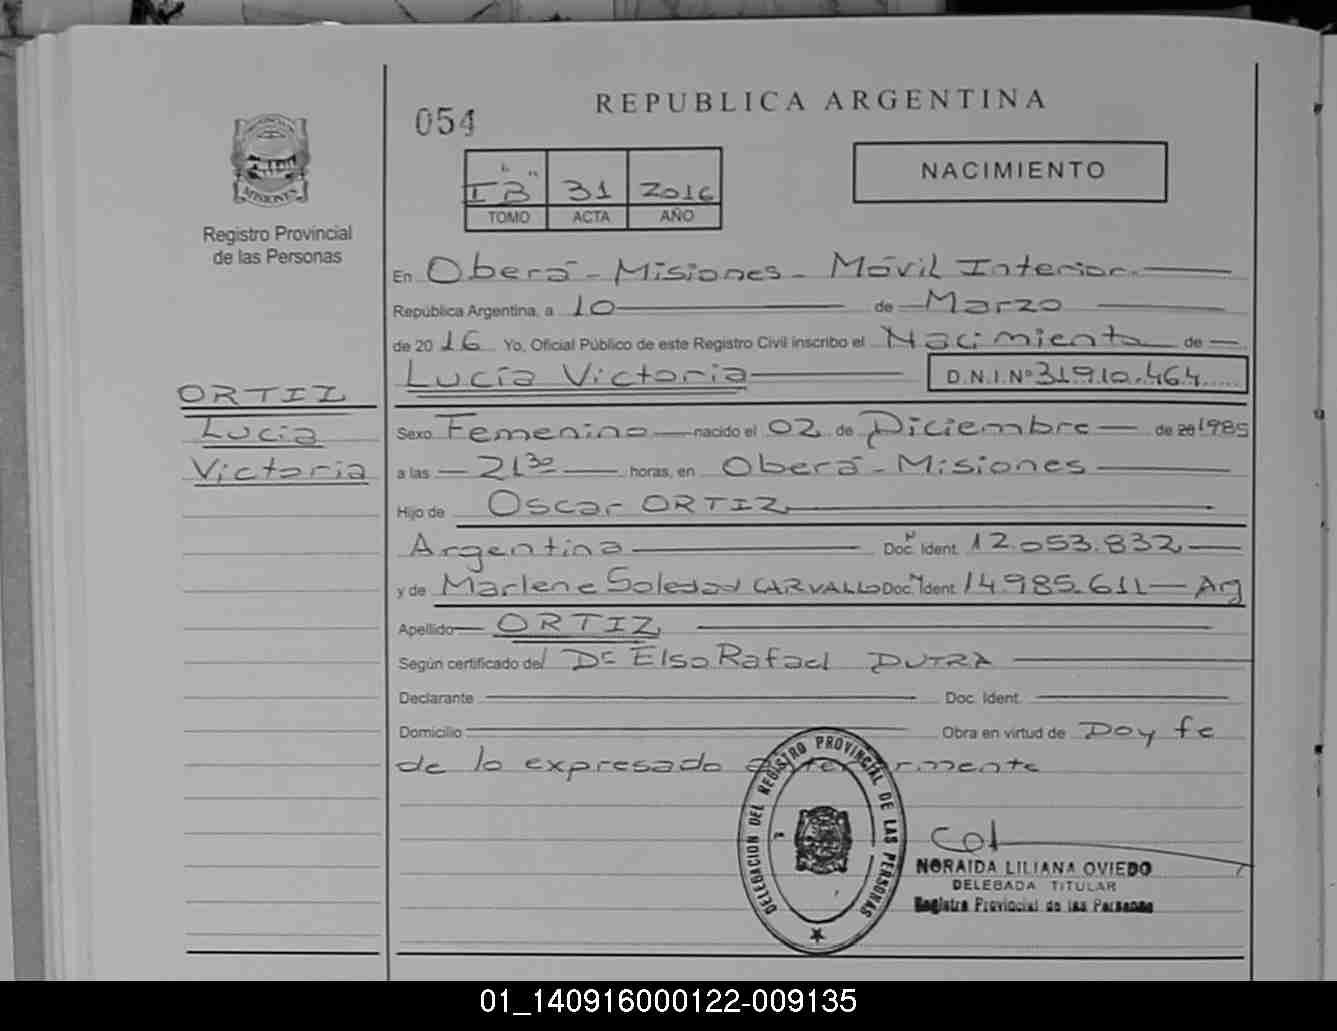 REPUBLICA ARGENTINA
054
NACIMIENTO
I "B" 31 2016
TOMO ACTA AÑO
MISIONES
Registro Provincial
de las Personas
En Oberá - Misiones - Móvil Interior
República Argentina, a 10 de Marzo
de 2016 Yo, Oficial Público de este Registro Civil inscribo el Nacimiento de
Lucía Victoria D.N.I.Nº 31.910.464
ORTIZ
Lucía
Victoria
Sexo Femenino nacido el 02 de Diciembre de 1985
a las 21 30 horas, en Oberá - Misiones
Hijo de Oscar ORTIZ
Argentina Doc. Ident. 12.053.832
y de Marlene Soledad CARVALLO Doc. Ident. 14.985.611 - Arg
Apellido ORTIZ
Según certificado del Dr Elso Rafael DUTRA
Declarante Doc. Ident.
Domicilio Obra en virtud de Doy fe
de lo expresado anteriormente
DELEGACION DEL REGISTRO PROVINCIAL DE LAS PERSONAS
NORAIDA LILIANA OVIEDO
DELEGADA TITULAR
Registro Provincial de las Personas
01_140916000122-009135